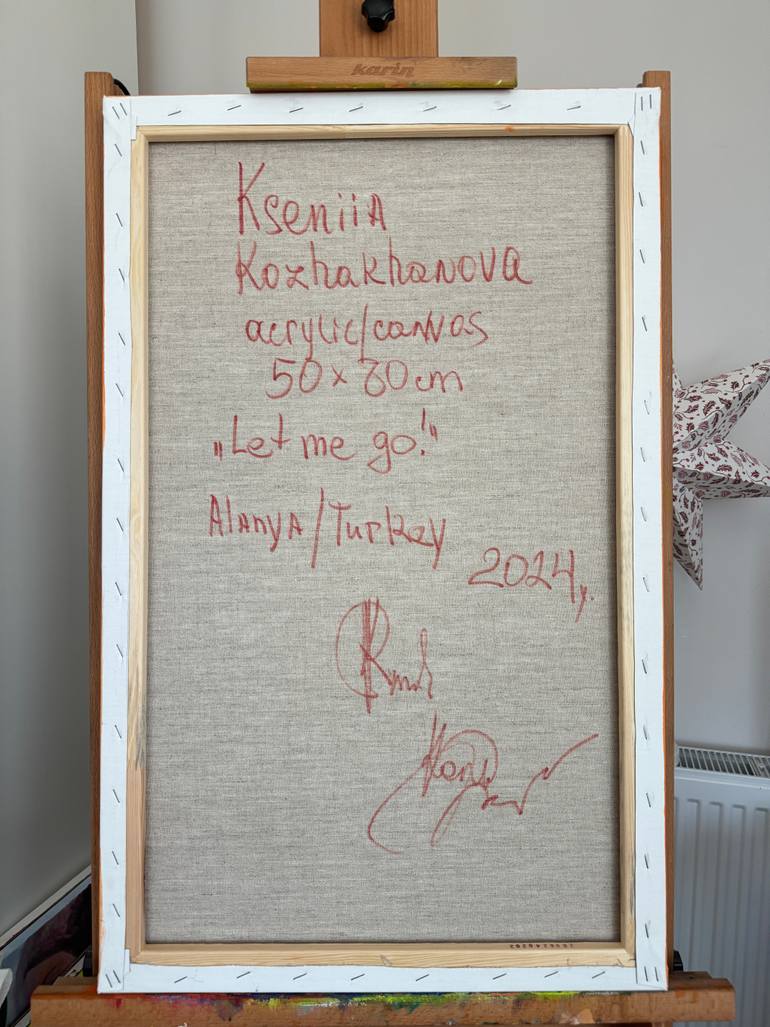 karin
Kseniia
Kozhakhanova
acrylic/canvas
50 x 80 cm
„Let me go!"
Alanya/Turkey
2024 y.